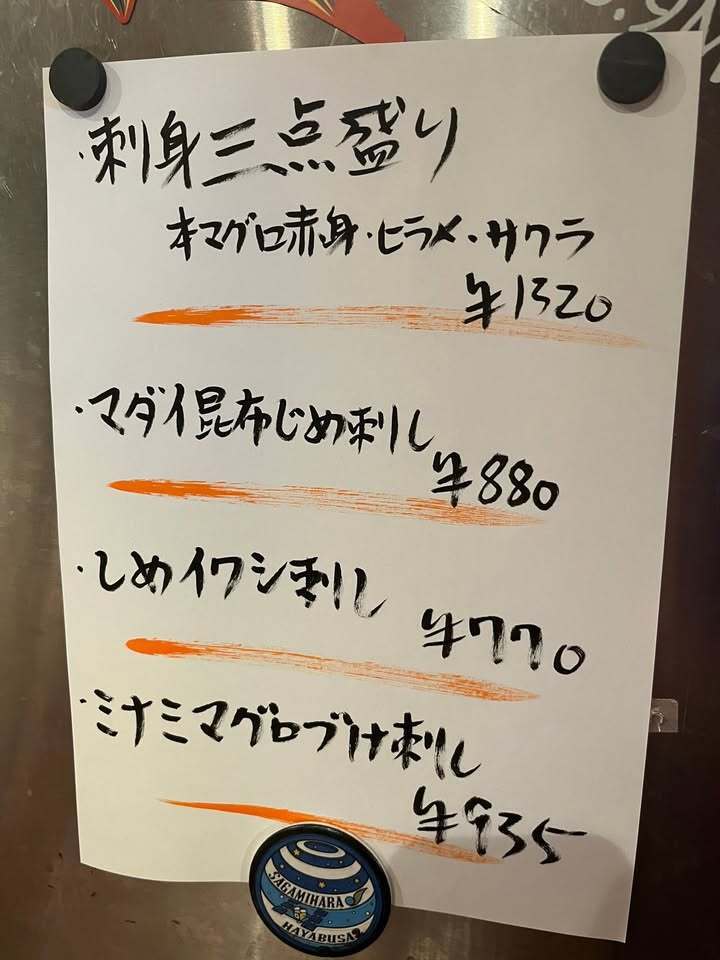 ・刺身三点盛り
本マグロ赤身・ヒラメ・サクラ
¥1320
・マダイ昆布じめ刺し
¥880
・しめイワシ刺し
¥770
・ミナミマグロづけ刺し
¥935
SAGAMIHARA
HAYABUSA2